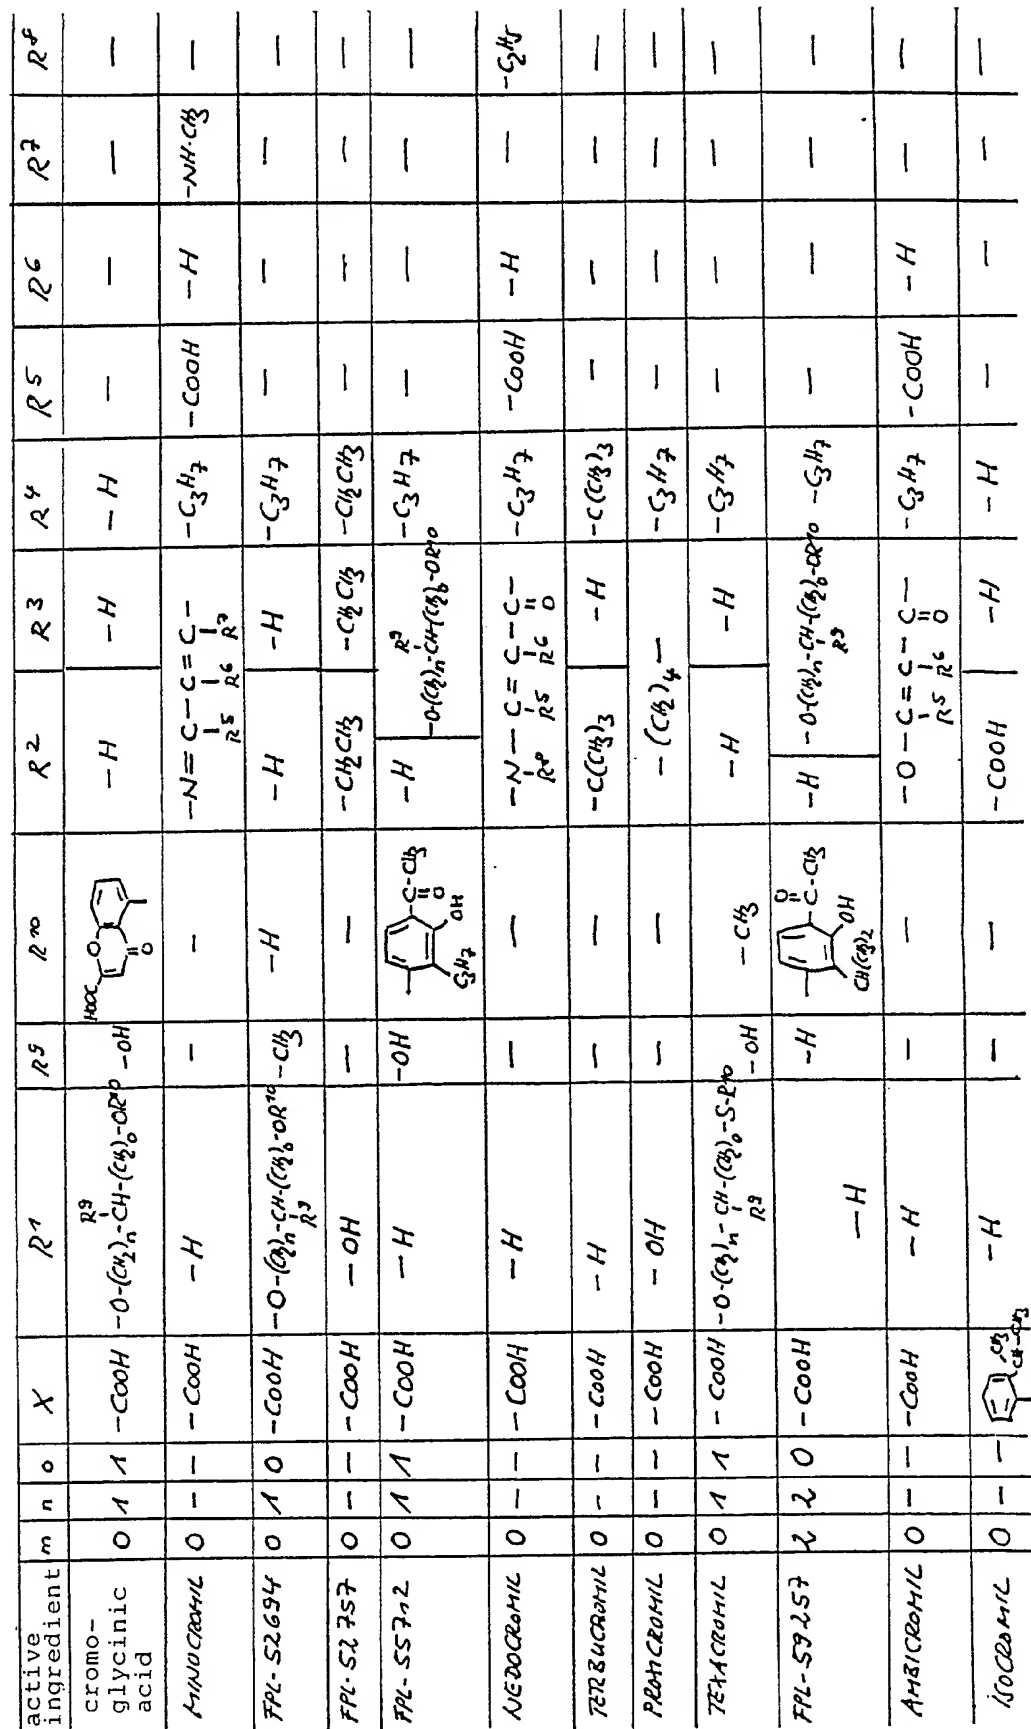 active ingredient | m | n | o | X | R1 | R9 | R10 | R2 | R3 | R4 | R5 | R6 | R7 | R8
cromo-glycinic acid | 0 | 1 | 1 | -COOH | -O-(CH2)n-CH-(CH2)o-OR10 R9 | -OH | HOOC O O | -H | -H | -H | — | — | — | —
MINOCROMIL | 0 | - | - | -COOH | -H | - | - | -N=C-C=C- R5 R6 R7 | -C3H7 | -COOH | -H | -NH·CH3 | —
FPL-52694 | 0 | 1 | 0 | -COOH | -O-(CH2)n-CH-(CH2)o-OR10 R9 | -CH3 | -H | -H | -H | -C3H7 | — | — | — | —
FPL-52757 | 0 | - | - | -COOH | -OH | — | — | -CH2CH3 | -CH2CH3 | -CH2CH3 | — | — | — | —
FPL-55712 | 0 | 1 | 1 | -COOH | -H | -OH | C-CH3 O OH C3H7 | -H | -O-(CH2)n-CH-(CH2)o-OR10 R9 | -C3H7 | — | — | — | —
NEDOCROMIL | 0 | - | - | -COOH | -H | — | — | -N-C=C-C- R8 R5 R6 O | -C3H7 | -COOH | -H | — | -C2H5
TERBUCROMIL | 0 | - | - | -COOH | -H | — | — | -C(CH3)3 | -H | -C(CH3)3 | — | — | — | —
PROXICROMIL | 0 | - | - | -COOH | -OH | — | — | -(CH2)4- | -C3H7 | — | — | — | —
TEXACROMIL | 0 | 1 | 1 | -COOH | -O-(CH2)n-CH-(CH2)o-S-R10 R9 | -OH | -CH3 | -H | -H | -C3H7 | — | — | — | —
FPL-59257 | 2 | 2 | 0 | -COOH | -H | -H | O C-CH3 OH CH(CH3)2 | -H | -O-(CH2)n-CH-(CH2)o-OR10 R9 | -C3H7 | — | — | — | —
AMBICROMIL | 0 | - | - | -COOH | -H | — | — | -O-C=C-C- R5 R6 O | -C3H7 | -COOH | -H | — | —
ISOCROMIL | 0 | - | - | CH3 CH-CH3 | -H | — | — | -COOH | -H | -H | — | — | — | —